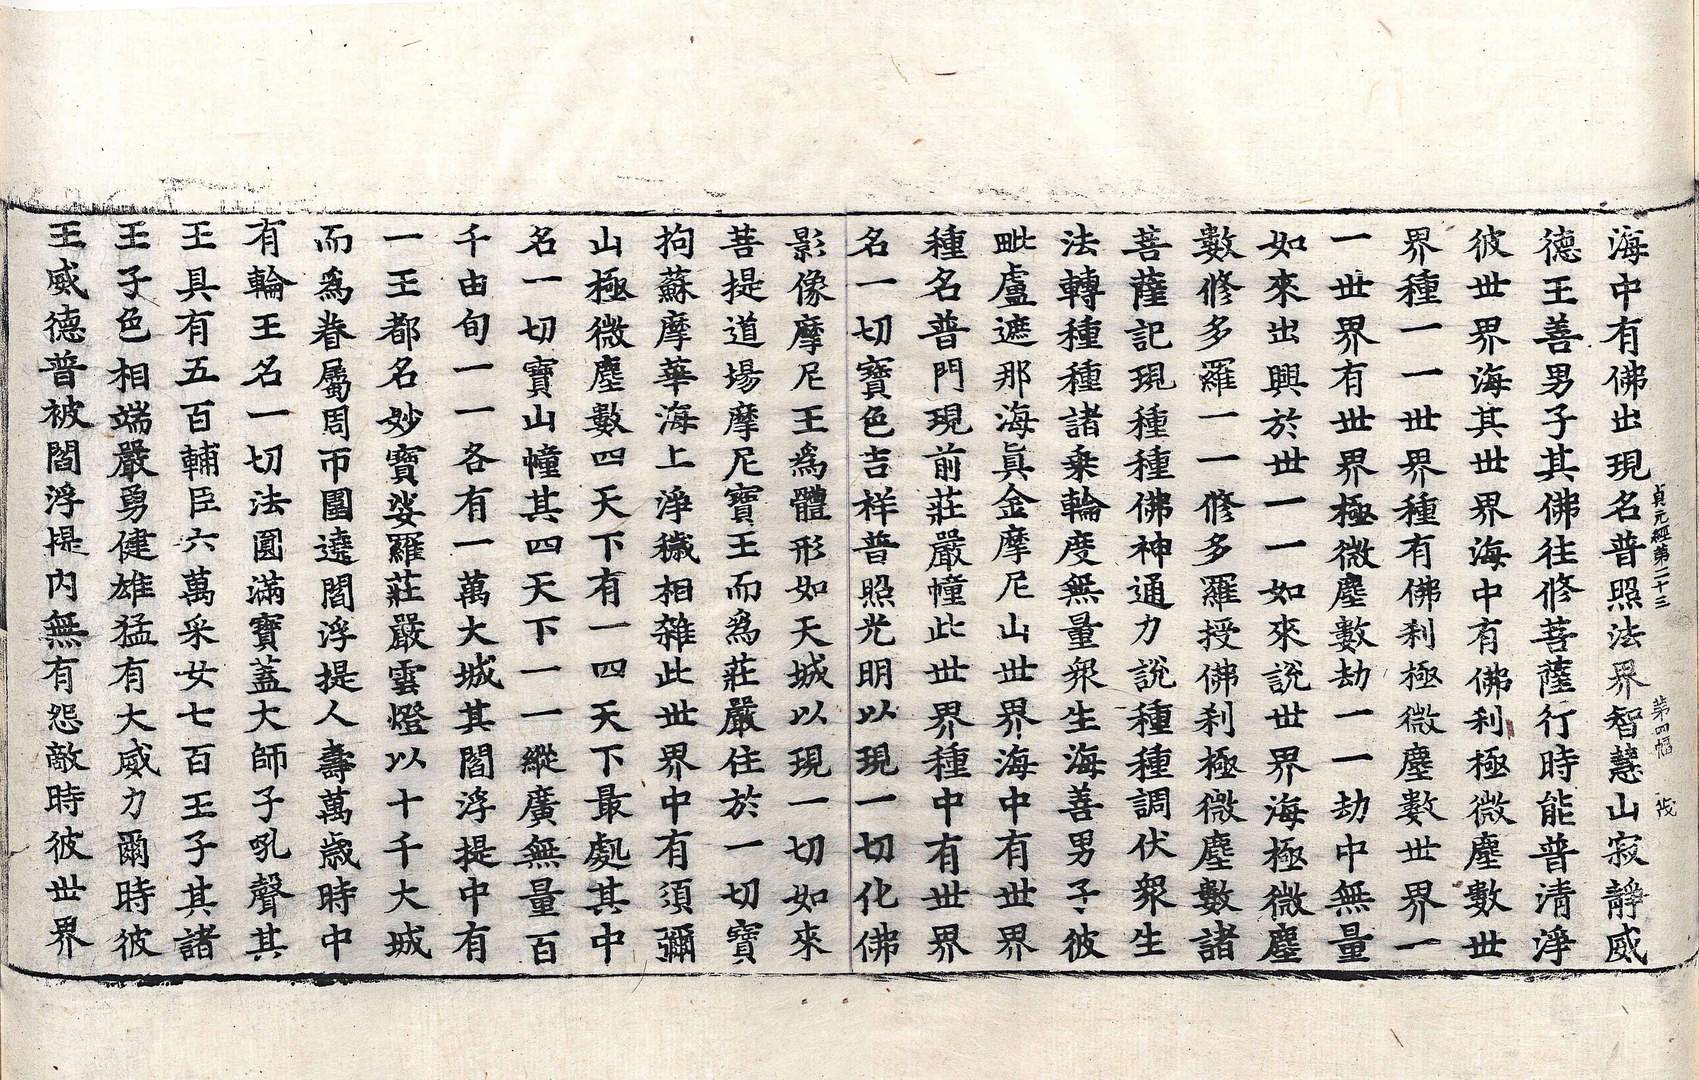 貞元經第二十三 第四幅 茂
海中有佛出現名普照法界智慧山寂靜威
德王善男子其佛往修菩薩行時能普清淨
彼世界海其世界海中有佛刹極微塵數世
界種一一世界種有佛刹極微塵數世界一
一世界有世界極微塵數劫一一劫中無量
如來出興於世一一如來說世界海極微塵
數修多羅一一修多羅授佛刹極微塵數諸
菩薩記現種種佛神通力說種種調伏眾生
法轉種種諸乘輪度無量眾生海善男子彼
毗盧遮那海真金摩尼山世界海中有世界
種名普門現前莊嚴幢此世界種中有世界
名一切寶色吉祥普照光明以現一切化佛
影像摩尼王為體形如天城以現一切如來
菩提道場摩尼寶王而為莊嚴住於一切寶
拘蘇摩華海上淨穢相雜此世界中有須彌
山極微塵數四天下有一四天下最處其中
名一切寶山幢其四天下一一縱廣無量百
千由旬一一各有一萬大城其閻浮提中有
一王都名妙寶娑羅莊嚴雲燈以十千大城
而為眷屬周帀圍遶閻浮提人壽萬歲時中
有輪王名一切法圓滿寶蓋大師子吼聲其
王具有五百輔臣六萬采女七百王子其諸
王子色相端嚴勇健雄猛有大威力爾時彼
王威德普被閻浮提內無有怨敵時彼世界